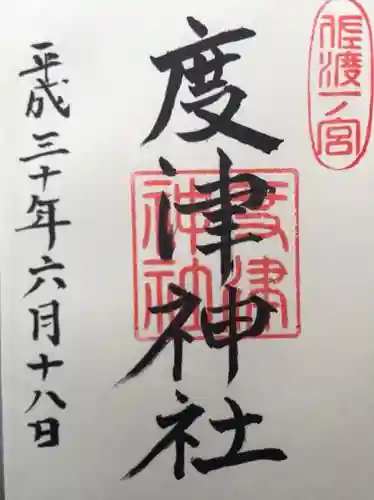 佐渡一ノ宮
度津神社
度津神社
平成三十年六月十八日